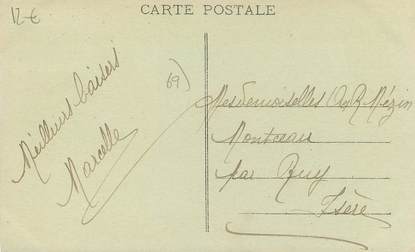 12-€
CARTE POSTALE
69)
Meilleurs baisers
Marcelle
Mesdemoiselles
Montceau
par Ruy
Isère